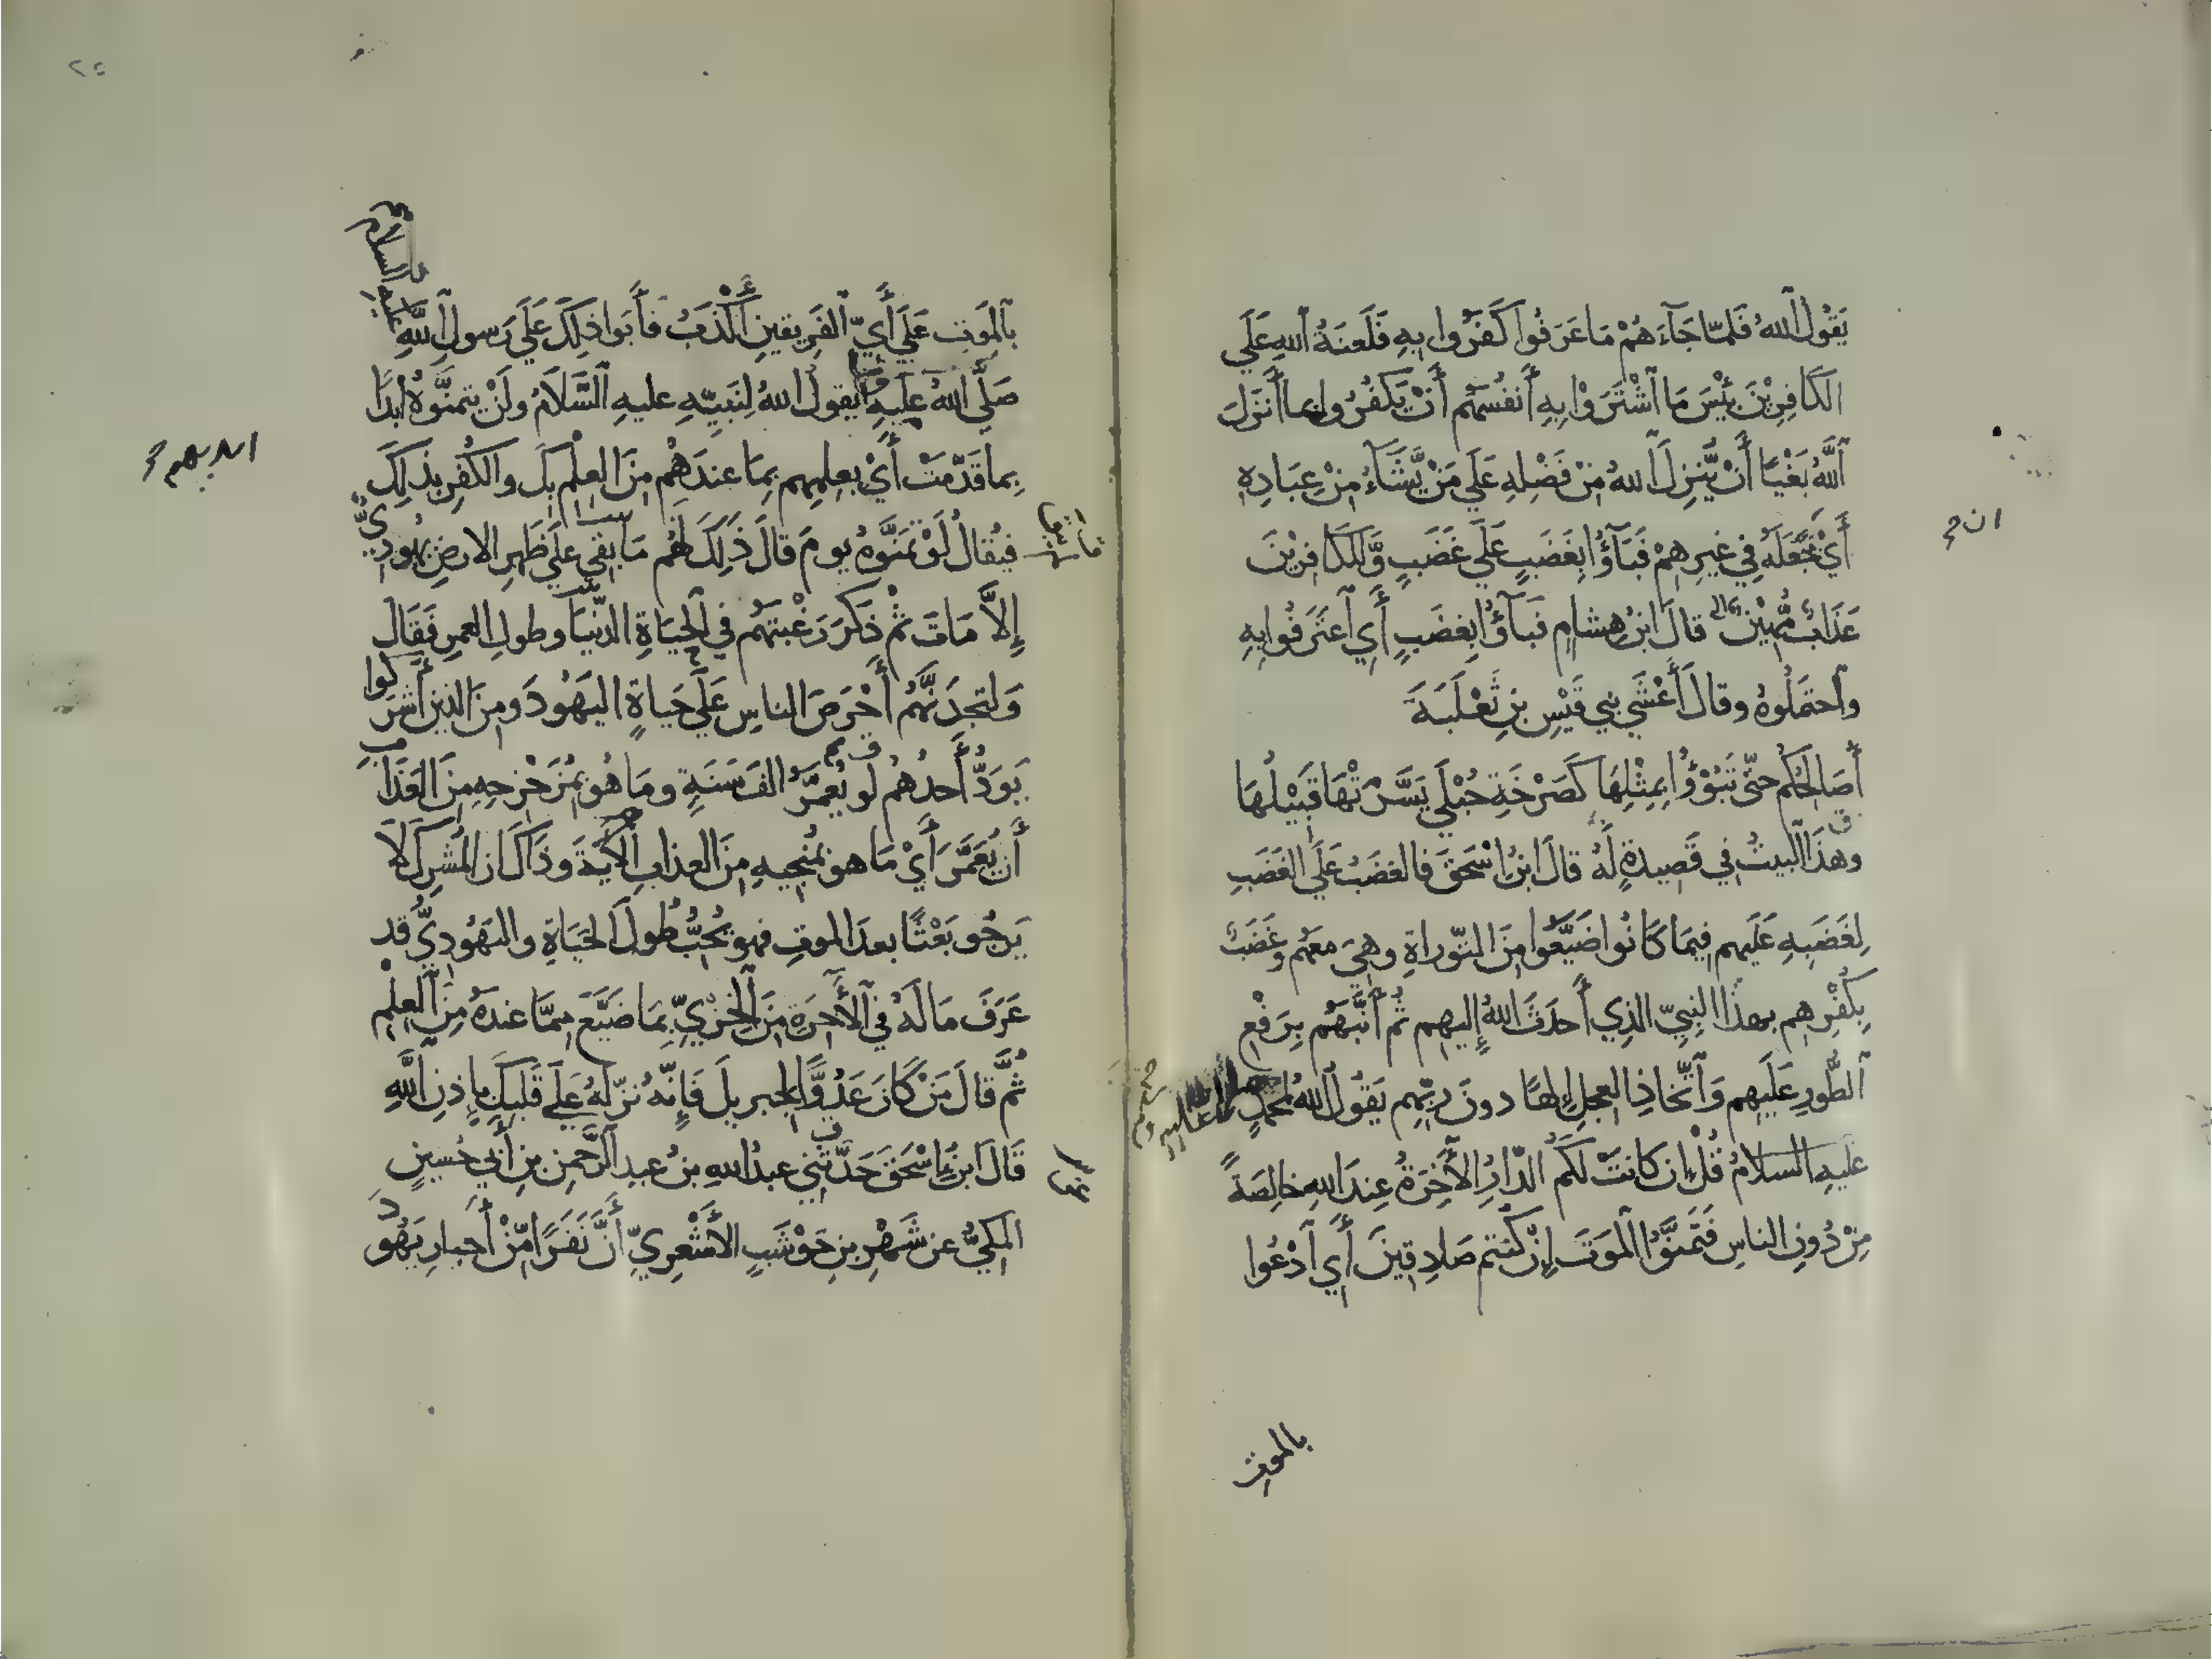 يَقُولُ اللهُ فَلَمّا جَآءَهُمْ مَا عَرَفُوا كَفَرُوا بِهِ فَلَعنَةُ اللهِ عَلَي
الكَافِرِيْنَ بِئْسَ مَا اشْتَرَوْا بِهِ أَنفُسَهُم أَنْ يَّكفُرُوا بما أَنزَلَ
اللَّهُ بَغْيًا أَنْ يُّنزِلَ اللهُ مِنْ فَضْلِهِ عَلَي مَنْ يَّشَآءُ مِنْ عِبَادِهِ
أَيْ جَعَلَهُ فِي غيرِهِمْ فَبَآؤُا بِغَضَبٍ عَلَي غَضَبٍ وَّلِلكَافِرِيْنَ
عَذَابٌ مُّهِيْنٌ قالَ ابنُ هِشامٍ فَبآؤُا بِغضَبٍ أَيِ اعتَرَفُوا بِهِ
واحتَمَلُوهُ وقالَ أَعْشَي بَنِي قَيْسِ بنِ ثَعْلَبَةَ
أُصَالِحُكُم حتّي تَبُوْؤُا بِمِثْلِهَا كَصَرْخَةِ حُبْلَي يَسَّرَتْهَا قَبِيْلُهَا
وهذَا البيتُ في قَصِيدةٍ لَهُ قالَ ابنُ اسْحَقَ فالغضَبُ عَلَي الغَضَبِ
لِغَضَبِهِ عَلَيهِم فِيمَا كَانُوا ضَيَّعُوا مِنَ التّوراةِ وهِيَ معَهُم وغَضَبٌ
بِكُفْرِهِم بهذَا النبِيِّ الذِي أَحدَثَ اللهُ إِليهِم ثُم أَنَّبَهُم بِرَفْعِ
الطُّورِ عَلَيهِم وَاتِّخَاذِ العِجلِ إِلهًا دونَ ربِّهِم يَقُولُ اللهُ لمحمّدٍ
عَلَيهِ السلامُ قُلْ إِن كانتْ لَكُم الدّارُ الأَخِرَةُ عِندَ اللهِ خالِصَةً
مِنْ دُونِ الناسِ فَتَمَنَّوُا الموَتَ إِنْ كُنتم صَادِقِينَ أَيِ ادْعُوا
بالموتِ
٢٤
بالموَتِ عَلَي أَيِّ الفَرِيقينِ أَكْذَبُ فأَبَوا ذلِكَ عَلَي رَسولِ اللَّهِ
صَلَّي اللهُ عليهِ يقولُ اللهُ لِنَبِيّهِ عليهِ السَّلَامُ ولَنْ يتمنَّوهُ أَبدًا
بِما قَدّمَتْ أَيْ بعِلمِهِم بِمَا عندَهُم مِنَ العِلْمِ بِكَ والكُفْرِ بذلِكَ
فيُقالُ لَوْ تمَنَّوهُ يومَ قالَ ذَلِكَ لَهُم مَا بقِي علَي ظَهرِ الارضِ يهُودِيٌّ
إِلاَّ مَاتَ ثمّ ذَكَرَ رَغْبتَهُم في الحَيَاةِ الدّنيَا وطولِ العمرِ فَقَالَ
وَلتجِدَنَّهُم أَحْرَصَ الناسِ عَلَي حَياةٍ اليَهُودَ ومِنَ الذين أَشْرَكُوا
يَوَدُّ أَحدُهُم لو يُعمَّرُ الفَ سَنَةٍ ومَا هُو بِمُزَحْزِحِهِ مِنَ العَذَابِ
أَن يُعَمَّرَ أَيْ مَا هو بمُنْجِيهِ مِنَ العذابِ الآيةَ وذَاكَ ان المُشرِكَ لَا
يَرجُو بَعْثًا بعدَ الموتِ فهو يُحِبُّ طُولَ الحَيَاةِ واليَهُودِيُّ قد
عَرَفَ مَا لَهُ فِي الأَخِرَةِ مِنَ الخِزْيِ بِمَا ضَيَّعَ مِمَّا عندهُ مِنَ العِلْمِ
ثُمَّ قالَ مَنْ كَانَ عَدُوًّا لجبريلَ فَإِنَّهُ نزّلَهُ عَلَي قَلبِكَ بإِذنِ اللهِ
قَالَ ابنُ إِسْحَقَ حَدَّثَنِي عبدُ اللهِ بنُ عبدِ الرَّحمنِ بنِ أَبي حُسينٍ
المَكيُّ عن شَهْرِ بنِ حَوْشَبٍ الأَشْعِريِّ أَنَّ نَفَرًا مِّنْ أَحبارِ يَهُودَ